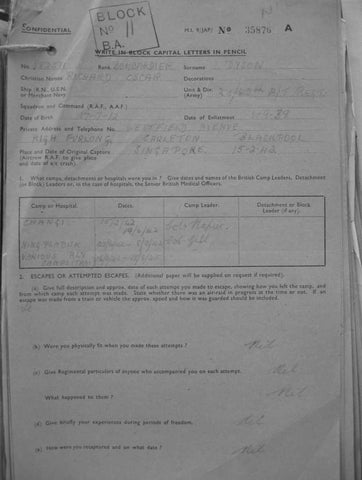 CONFIDENTIAL
BLOCK
No 11
B.A.
M.I. 9/JAP/ No 35876 A
WRITE IN BLOCK CAPITAL LETTERS IN PENCIL
No. Rank BOMBARDIER Surname DYSON
Christian Names RICHARD OSCAR Decorations
Ship (R.N., U.S.N. or Merchant Navy) Unit & Div. (Army)
Squadron and Command (R.A.F., A.A.F.)
Date of Birth Date of Enlistment
Private Address and Telephone No. WESTFIELD AVENUE
HIGH FURLONG CARLETON BLACKPOOL
Place and Date of Original Capture SINGAPORE 15-2-42
(Aircrew R.A.F. to give place and date of air crash).
1. What camps, detachments or hospitals were you in? Give dates and names of the British Camp Leaders, Detachment (or Block) Leaders or, in the case of hospitals, the Senior British Medical Officers.
Camp or Hospital. Dates. Camp Leader. Detachment or Block Leader (if any).
CHANGI
VARIOUS
2. ESCAPES OR ATTEMPTED ESCAPES. (Additional paper will be supplied on request if required).
(a) Give full description and approx. date of each attempt you made to escape, showing how you left the camp, and from which camp each attempt was made. State whether there was an air-raid in progress at the time or not. If an escape was made from a train or vehicle the approx. speed and how it was guarded should be included.
(b) Were you physically fit when you made these attempts? Nil
(c) Give Regimental particulars of anyone who accompanied you on each attempt. Nil
What happened to them? Nil
(d) Give briefly your experiences during periods of freedom. Nil
(e) How were you recaptured and on what date? Nil